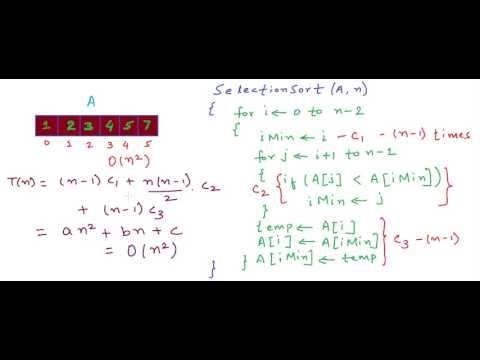 A
1 2 3 4 5 7
0 1 2 3 4 5
O(n²)
T(n) = (n-1) c₁ + n(n-1)/2 . c₂
+ (n-1) c₃
= an² + bn + c
= O(n²)
SelectionSort (A, n)
{ for i ← 0 to n-2
{
iMin ← i - c₁ - (n-1) times
for j ← i+1 to n-1
{
c₂ { if (A[j] < A[iMin]) }
iMin ← j
}
temp ← A[i]
A[i] ← A[iMin] } c₃ - (n-1)
} } A[iMin] ← temp